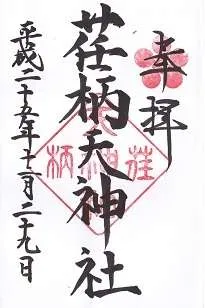 奉拝
荏柄天神社
平成二十五年十二月二十九日